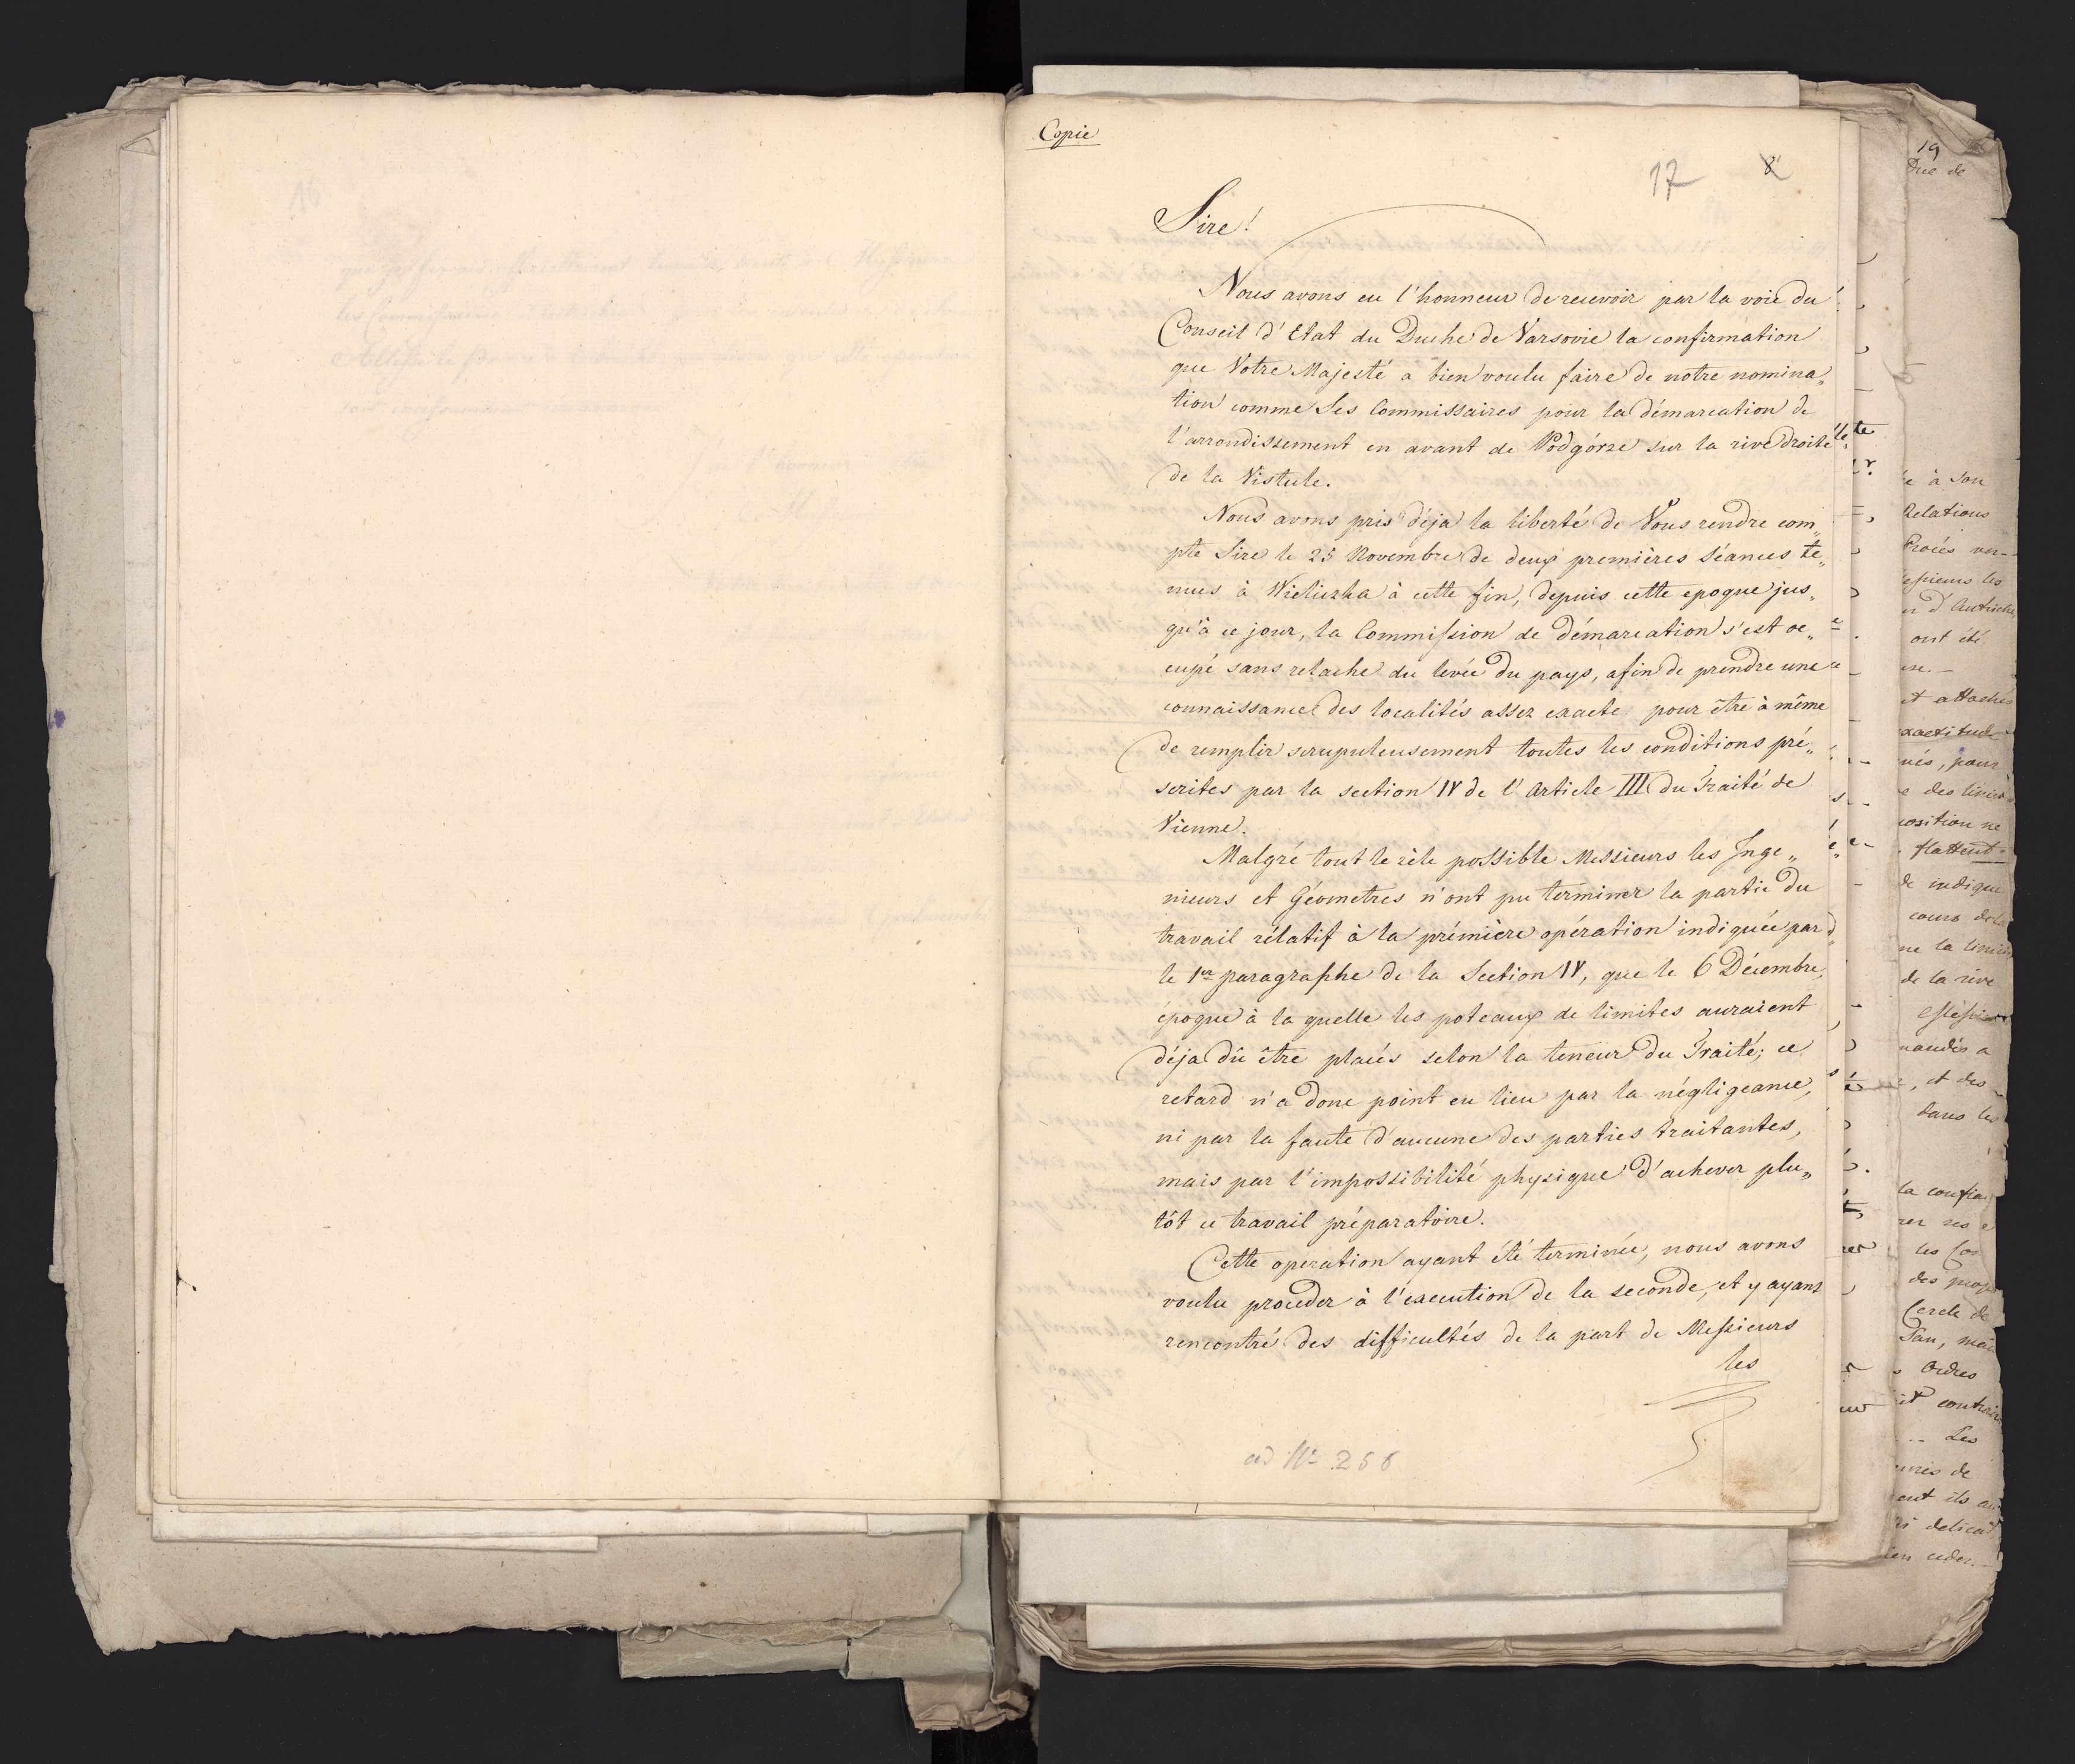 Copie
17 8
Sire!
Nous avons eu l'honneur de recevoir par la voie du
Conseil d'Etat du Duché de Varsovie la confirmation
que Votre Majesté a bien voulu faire de notre nomina„
tion comme Ses Commissaires pour la démarcation de
l'arrondissement en avant de Podgórze sur la rive droite
de la Vistule.
Nous avons pris déja la liberté de Vous rendre com„
pte Sire le 25 Novembre de deux premières Séances te„
nues à Wieliczka à cette fin, depuis cette epoque jus„
qu'à ce jour, la Commission de démarcation s'est oc„
cupé sans relache du levée du pays, afin de prendre une
connaissance des localités assez exacte pour être à même
de remplir scrupuleusement toutes les conditions pré„
scrites par la section IV de l'Article III du Traité de
Vienne.
Malgré tout le zèle possible Messieurs les Inge„
nieurs et Géometres n'ont pu terminer la partie du
travail rélatif à la prémière opération indiquée par
le 1er paragraphe de la Section IV, que le 6 Décembre,
époque à la quelle les poteaux de limites auraient
déja dû être placés selon la teneur du Traité; ce
retard n'a donc point eu lieu par la négligeance,
ni par la faute d'aucune des parties traitantes,
mais par l'impossibilité physique d'achever plu„
tôt ce travail préparatoire.
Cette operation ayant été terminée, nous avons
voulu proceder à l'execution de la seconde, et y ayant
rencontré des difficultés de la part de Messieurs
les
ad No 258
19
Duc de
à Son
Relations
Procés ver-
d'Autriche
ont été
et attachés
exactitude
pour
position ne
flattent
de indique
cours de la
de la rive
et des
dans les
la confian
les Com
Cercle de
San, mai
Ordres
Les